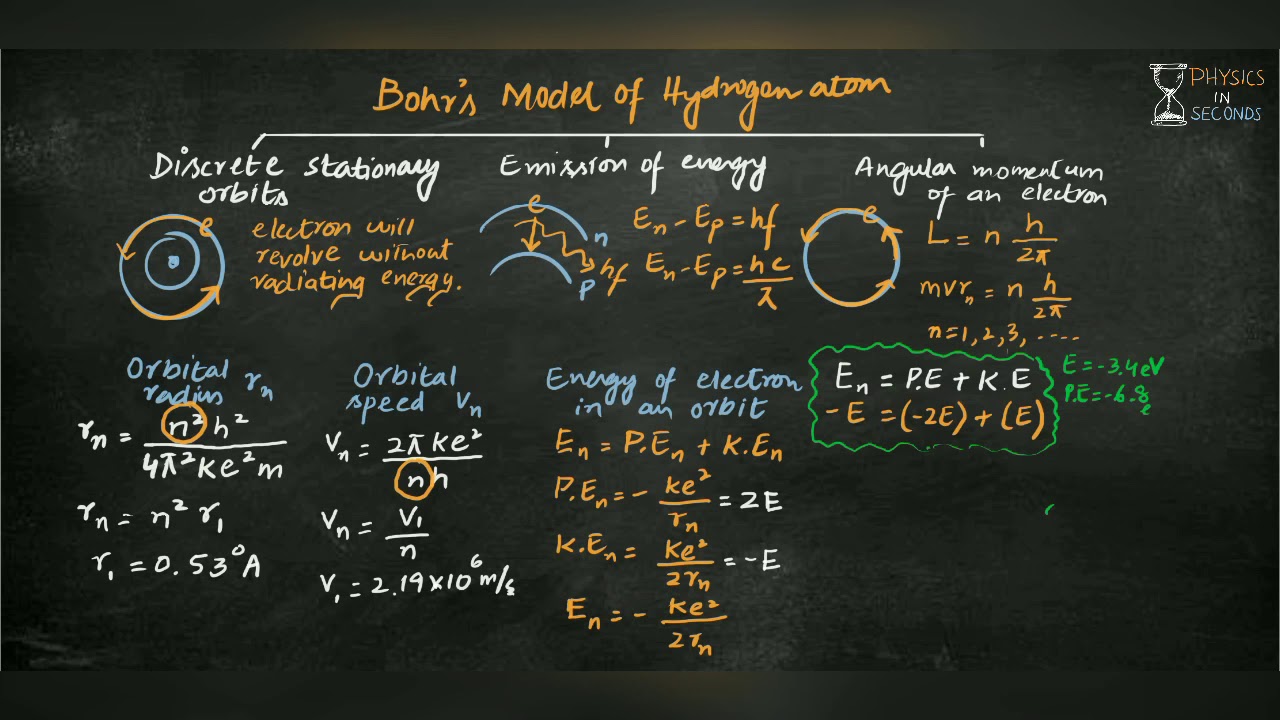 Bohr's Model of Hydrogen atom
PHYSICS
IN
SECONDS
Discrete stationary
orbits
e
electron will
revolve without
radiating energy.
Emission of energy
e
n
hf
P
En - Ep = hf
En - Ep = hc/λ
Angular momentum
of an electron
e
L = n h/2π
mvrn = n h/2π
n=1,2,3, .....
Orbital
radius rn
rn = n²h²/4π²Ke²m
rn = n² r1
r1 = 0.53°A
Orbital
speed Vn
Vn = 2πKe²/nh
Vn = V1/n
V1 = 2.19×10⁶ m/s
Energy of electron
in an orbit
En = P.En + K.En
P.En = - Ke²/rn = 2E
K.En = Ke²/2rn = -E
En = - Ke²/2rn
En = P.E + K.E
-E = (-2E) + (E)
E = -3.4eV
P.E = -6.8
e